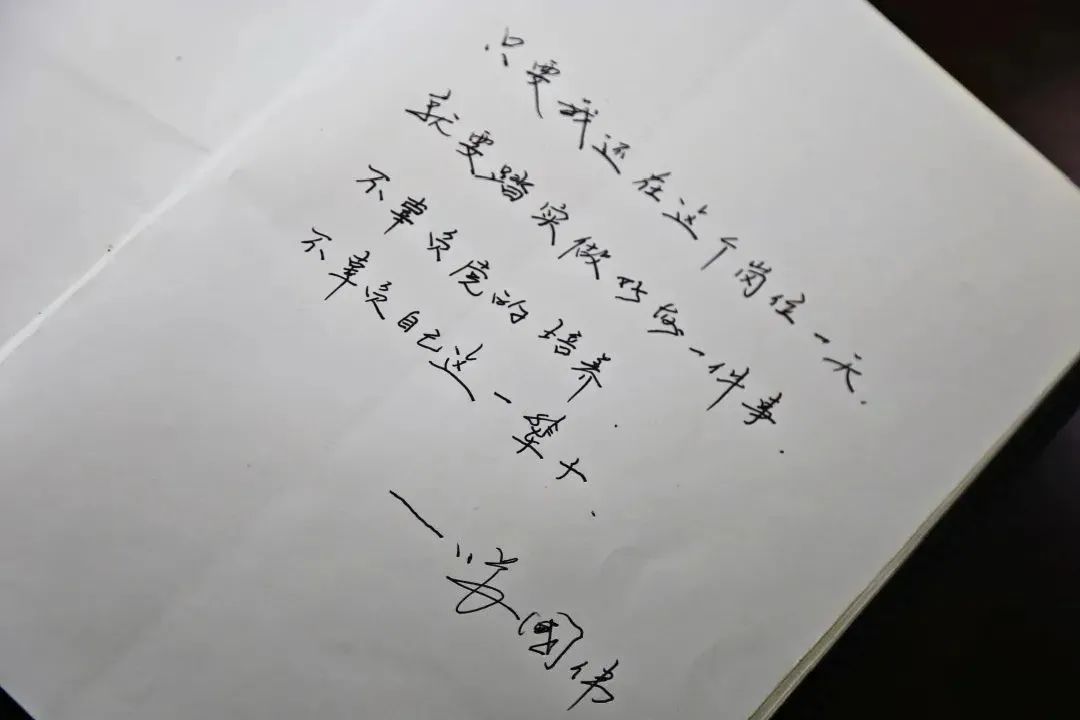 只要我还在这个岗位一天.
就要踏实做好每一件事.
不辜负党的培养.
不辜负自己这一辈子.
国伟